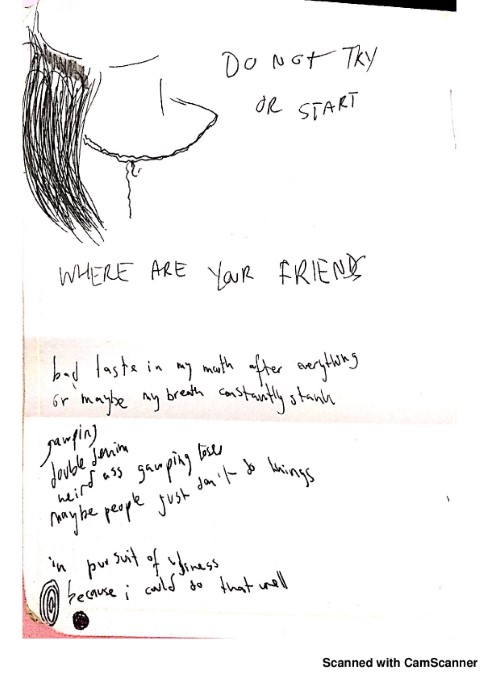 DO NOT TRY
OR START
WHERE ARE YOUR FRIENDS
bad taste in my mouth after everything
or maybe my breath constantly stank
gawping
double denim
weird ass gawping loser
maybe people just don't do things
in pursuit of
because i could do that well
Scanned with CamScanner